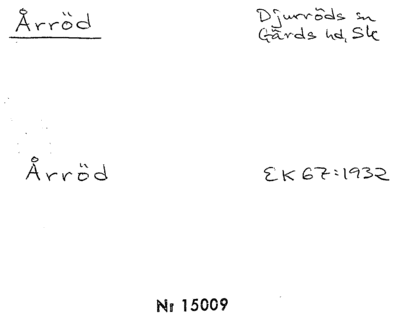 Årröd
Djurröds sn
Gärds hd, Sk
Årröd
EK 67:1932
Nr 15009